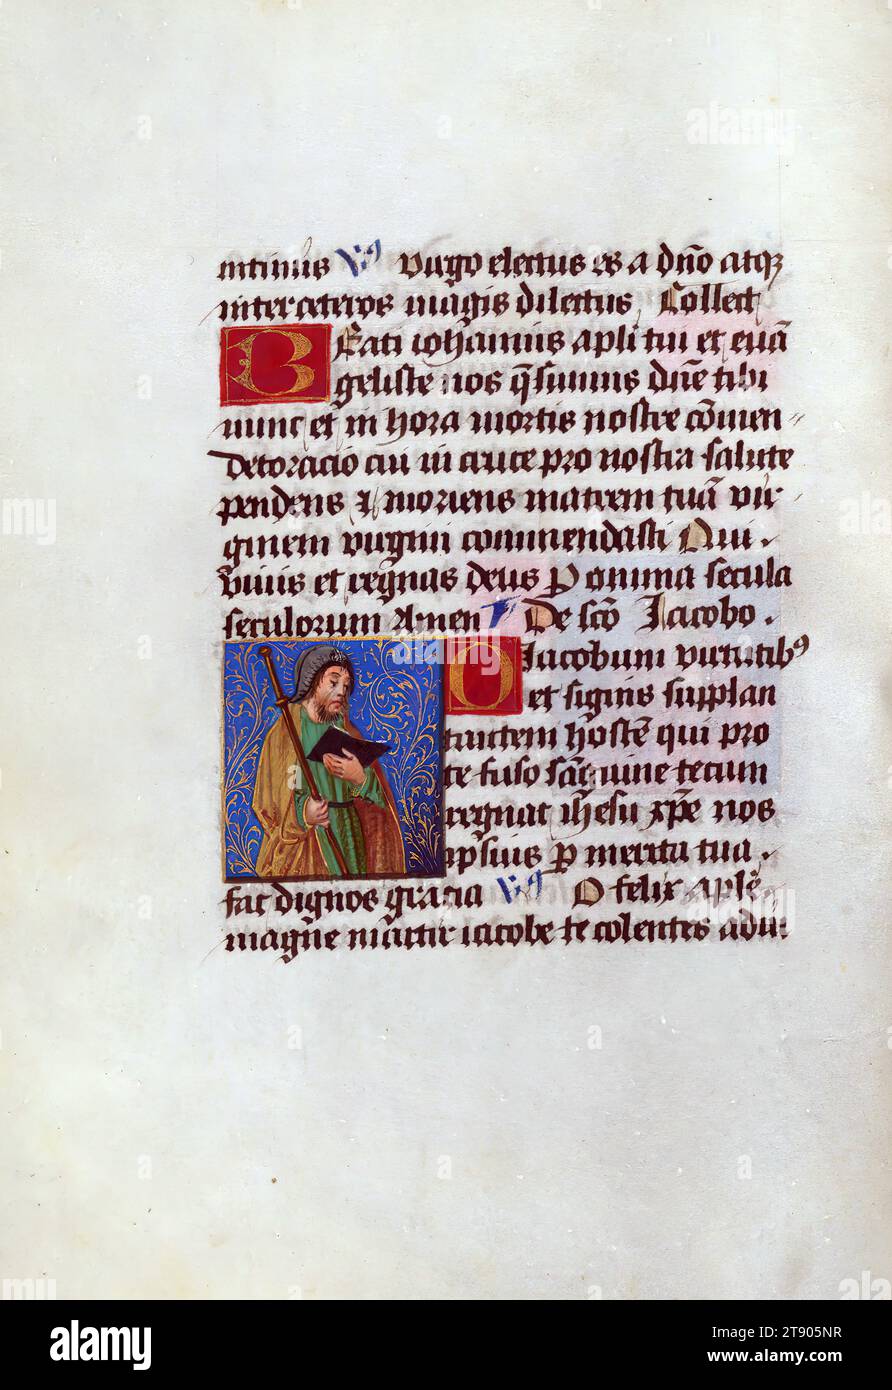 intimus V virgo electus es a dn̄o atqꝫ
inter ceteros magis dilectus Collect
Beati iohannis apl̄i tui et euā
geliste nos q̄sumus dn̄e tibi
nunc et in hora mortis nostre cōmen
det oracio cui in cruce pro nostra salute
pendens ⁊ moriens matrem tuā vir
ginem virgini commendasti Qui
viuis et regnas deus ꝑ omnia secula
seculorum Amen De sc̄o Jacobo
O Jacobum virtutibꝰ
et signis supplan
tantem hostē qui pro
te fuso sāguine tecum
regnat ih̄esu xp̄e nos
ip̄suis ꝑ merita tua
fac dignos gracia V O felix apl̄e
magne martir iacobe te colentes adiu
alamy
Image ID: 2T905NR
www.alamy.com